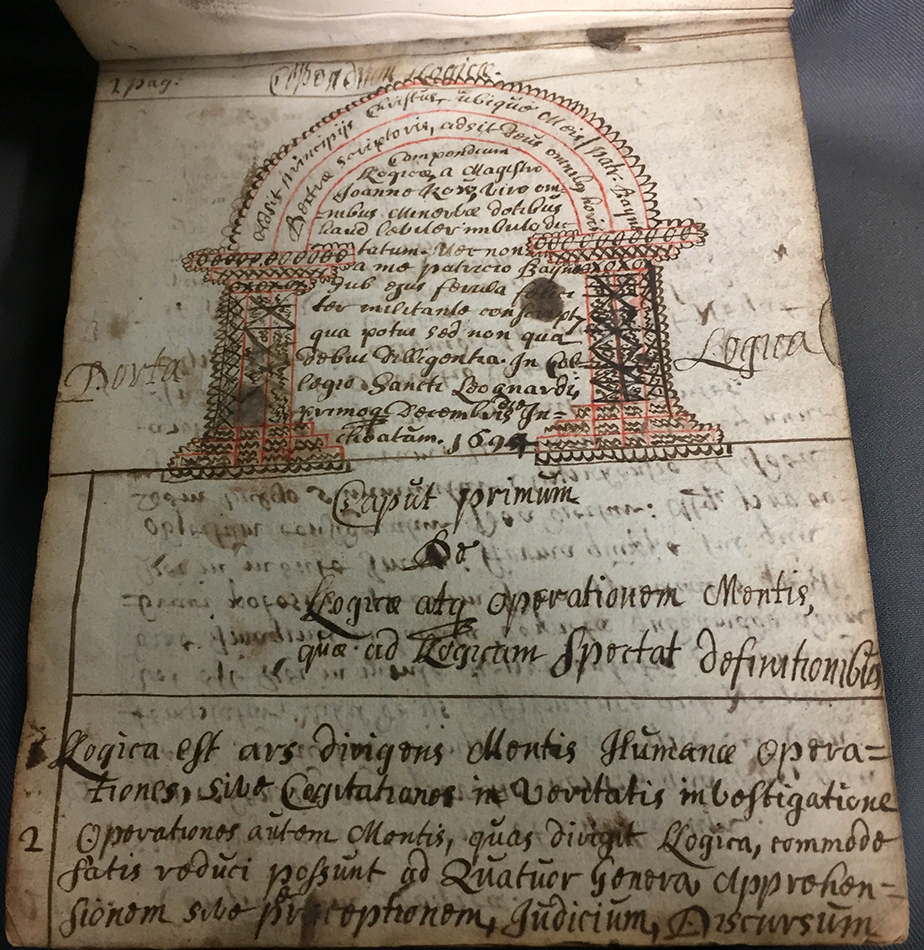 1 pag:
Compendium Logicæ.
Adsit principijs Christus, ubique Meis / patr. Bayne
scriptoris, adsit Deus omnibus horis
Compendium
Logicæ a Magistro
Joanne viro om-
nibus Minervæ dotibus
haud
tatum. Nec non
a me patricio Bayne
sub ejus ferula
ter militante conscript
qua potui sed non qua
debui dilligentia. In Col-
legio Sancti Leognardi
primoq Decembris die In-
choatum. 169
Porta
Logica
Caput primum
De
Logicæ atq operationem Mentis,
quæ ad Logicam spectat definitionibus
1 Logica est ars dirigens Mentis Humanæ opera=
tiones, sive Cogitationes in Veritatis investigatione
2 Operationes autem Mentis, quas dirigit Logica, commode
satis reduci possunt ad Quatuor genera, Apprehen=
sionem sive perceptionem, Judicium, Discursum